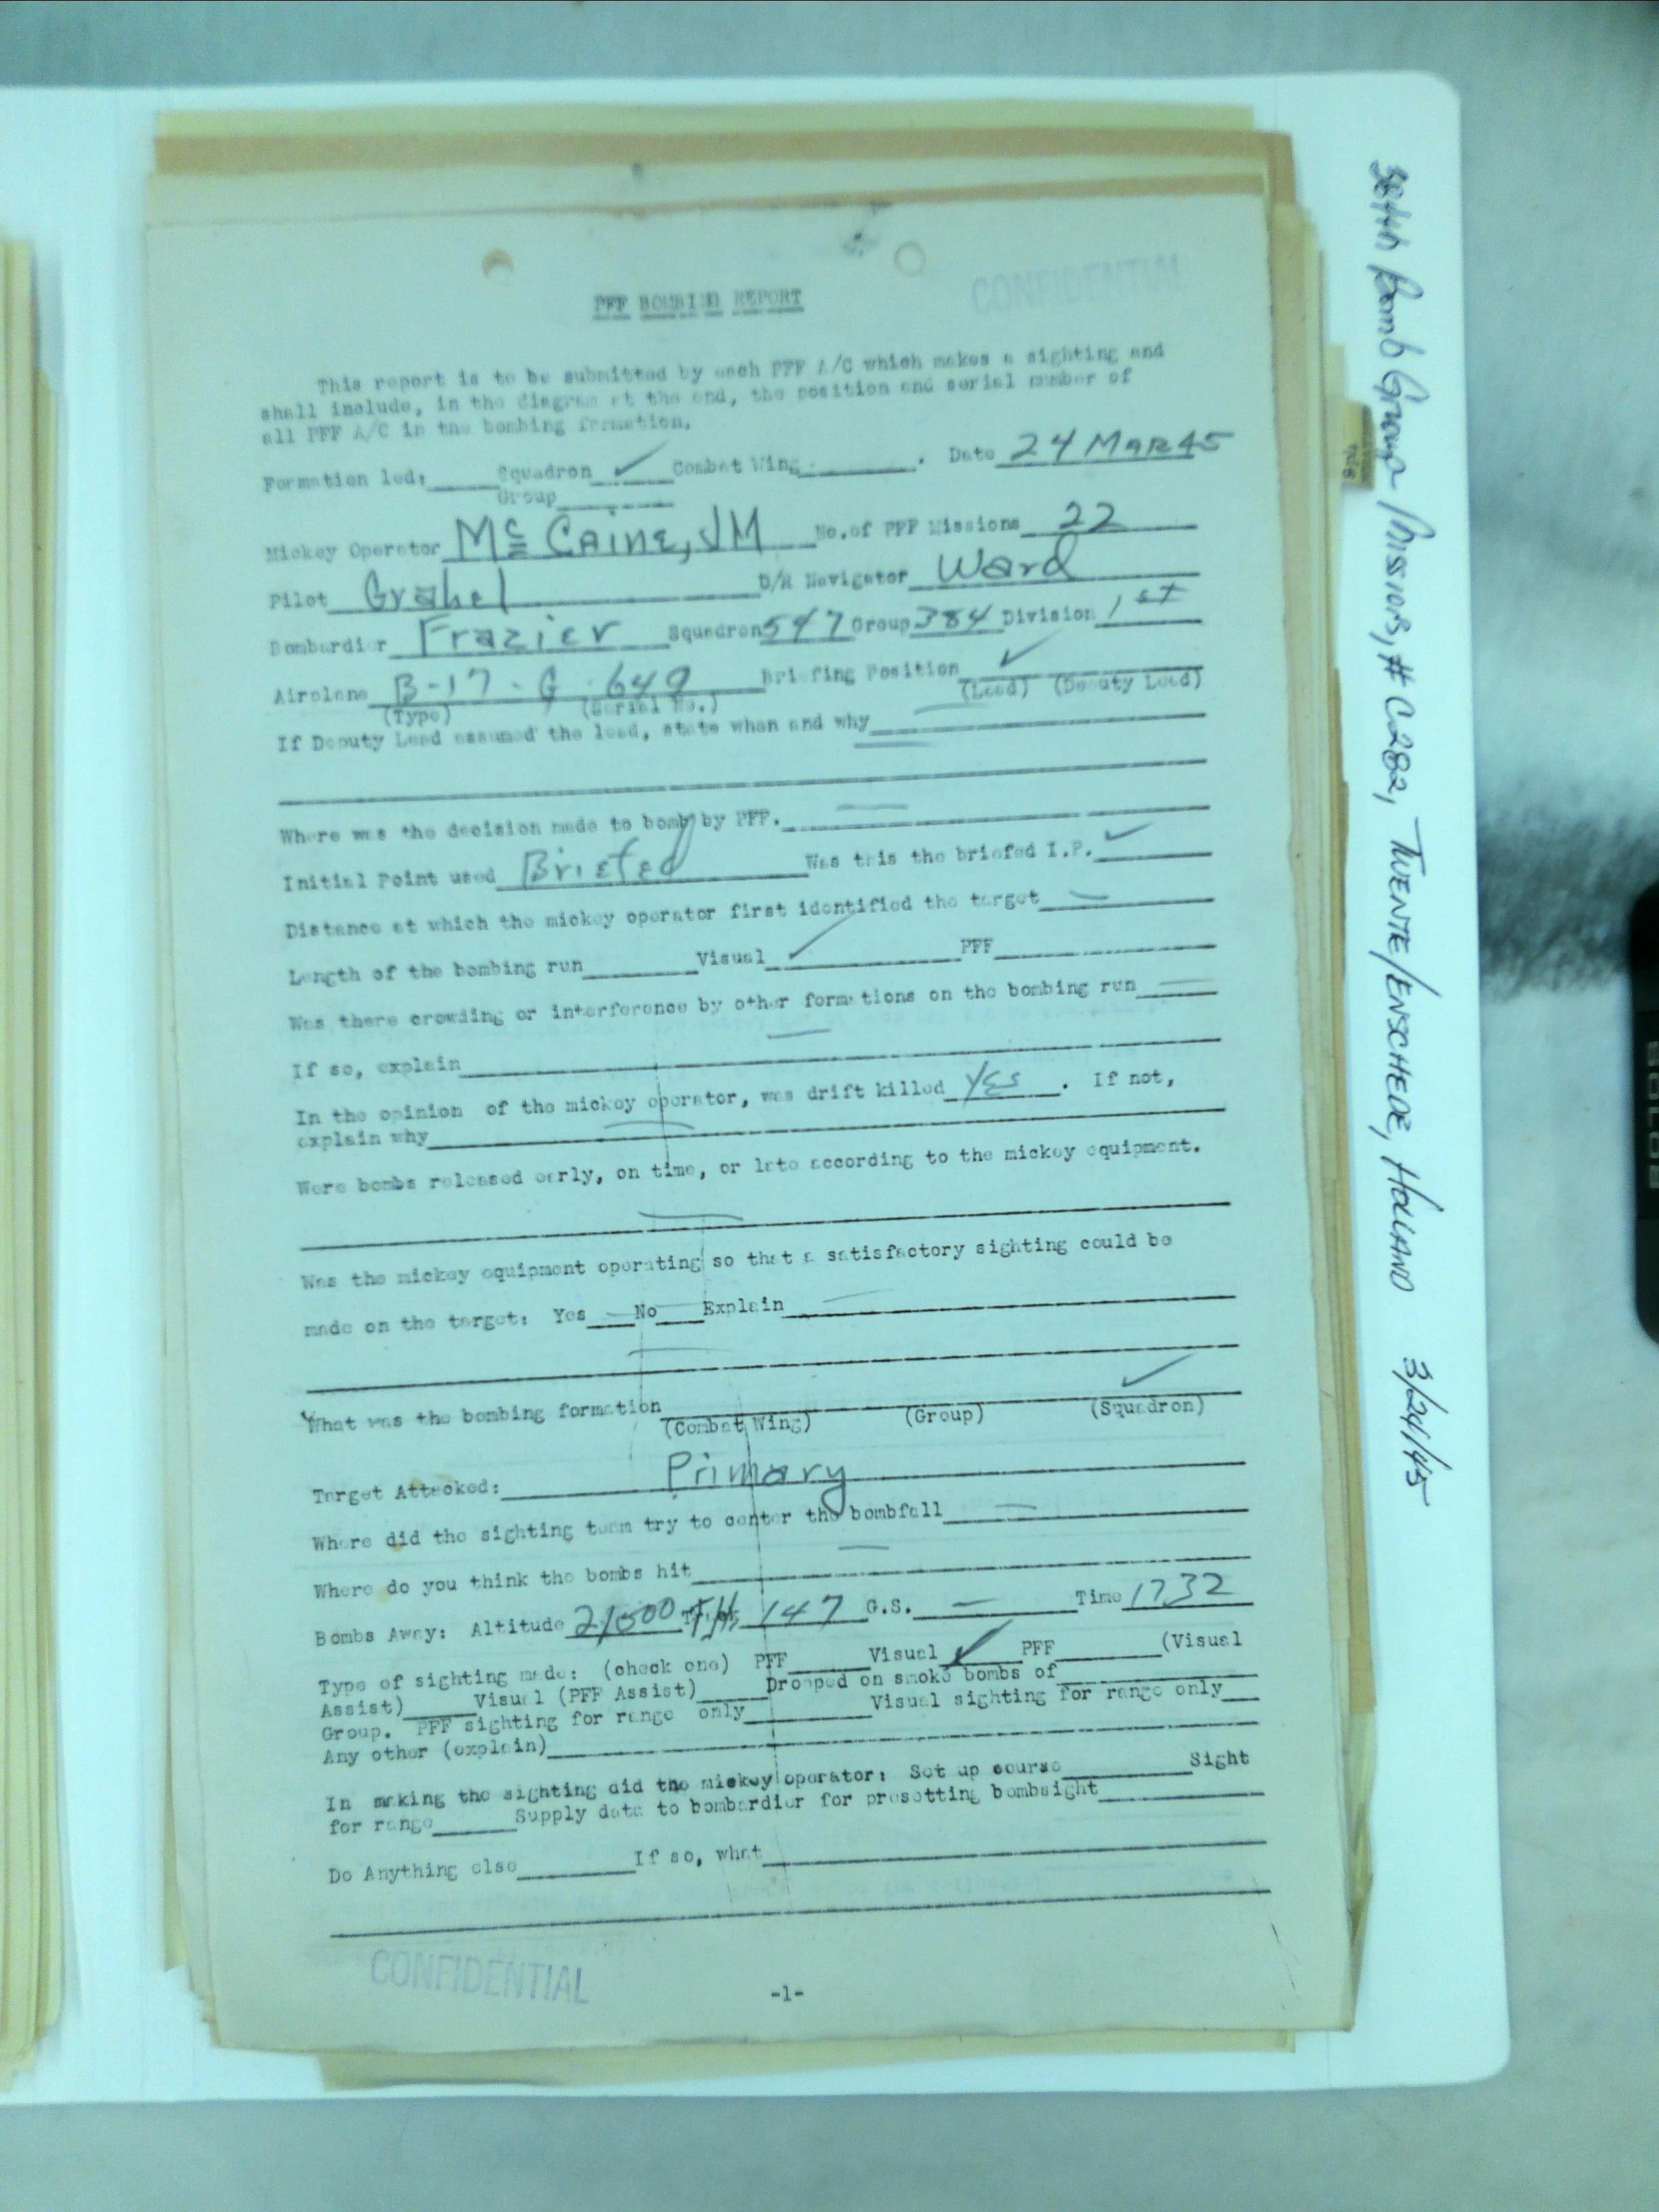 PFF BOMBING REPORT
CONFIDENTIAL
This report is to be submitted by each PFF A/C which makes a sighting and
shall include, in the diagram at the end, the position and serial number of
all PFF A/C in the bombing formation.
Formation led: Squadron ✓ Combat Wing . Date 24 MAR 45
Group
Mickey Operator Mc CAINE, JM No. of PFF Missions 22
Pilot Grabel D/R Navigator Ward
Bombardier Frazier Squadron 547 Group 384 Division 1st
Airplane B-17-G 649 Briefing Position ✓
(Type) (Serial No.) (Lead) (Deputy Lead)
If Deputy Lead assumed the lead, state when and why
Where was the decision made to bomb by PFF. —
Initial Point used Briefed Was this the briefed I.P. ✓
Distance at which the mickey operator first identified the target —
Length of the bombing run Visual ✓ PFF
Was there crowding or interference by other formations on the bombing run —
If so, explain —
In the opinion of the mickey operator, was drift killed YES . If not,
explain why —
Were bombs released early, on time, or late according to the mickey equipment.
—
Was the mickey equipment operating so that a satisfactory sighting could be
made on the target: Yes — No — Explain —
—
What was the bombing formation ✓
(Combat Wing) (Group) (Squadron)
Target Attacked: Primary
Where did the sighting team try to center the bombfall —
Where do you think the bombs hit —
Bombs Away: Altitude 21500 TH 147 G.S. — Time 1732
Type of sighting made: (check one) PFF Visual ✓ PFF (Visual
Assist) Visual (PFF Assist) Dropped on smoke bombs of
Group. PFF sighting for range only Visual sighting for range only
Any other (explain)
In making the sighting did the mickey operator: Set up course Sight
for range Supply data to bombardier for presetting bombsight
Do Anything else If so, what
CONFIDENTIAL
-1-
384th Bomb Group Missions, # C282, TWENTE/ENSCHEDE, HOLLAND 3/24/45